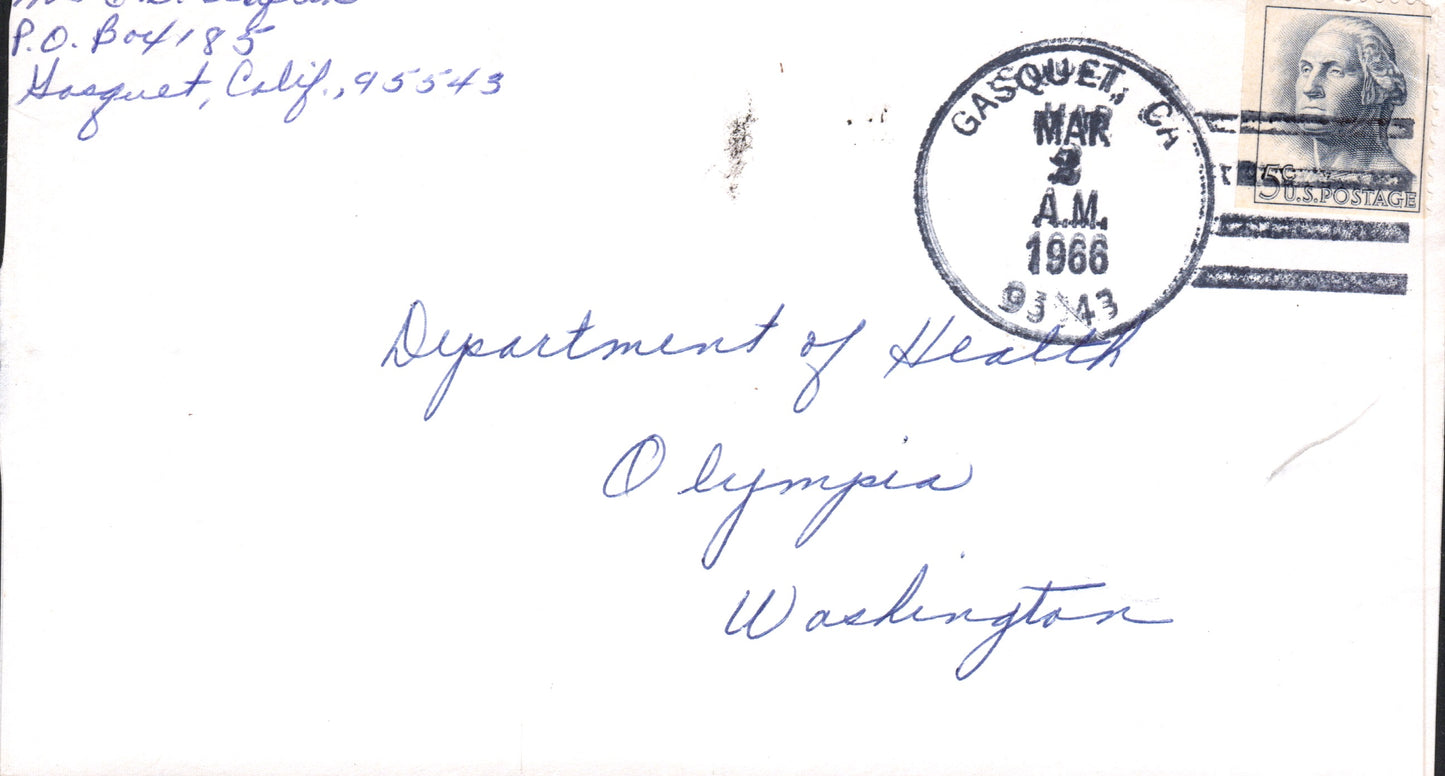 P.O. Box 185
Gasquet, Calif., 95543
GASQUET, CA
MAR
2
A.M.
1966
5c
U.S. POSTAGE
Department of Health
Olympia
Washington